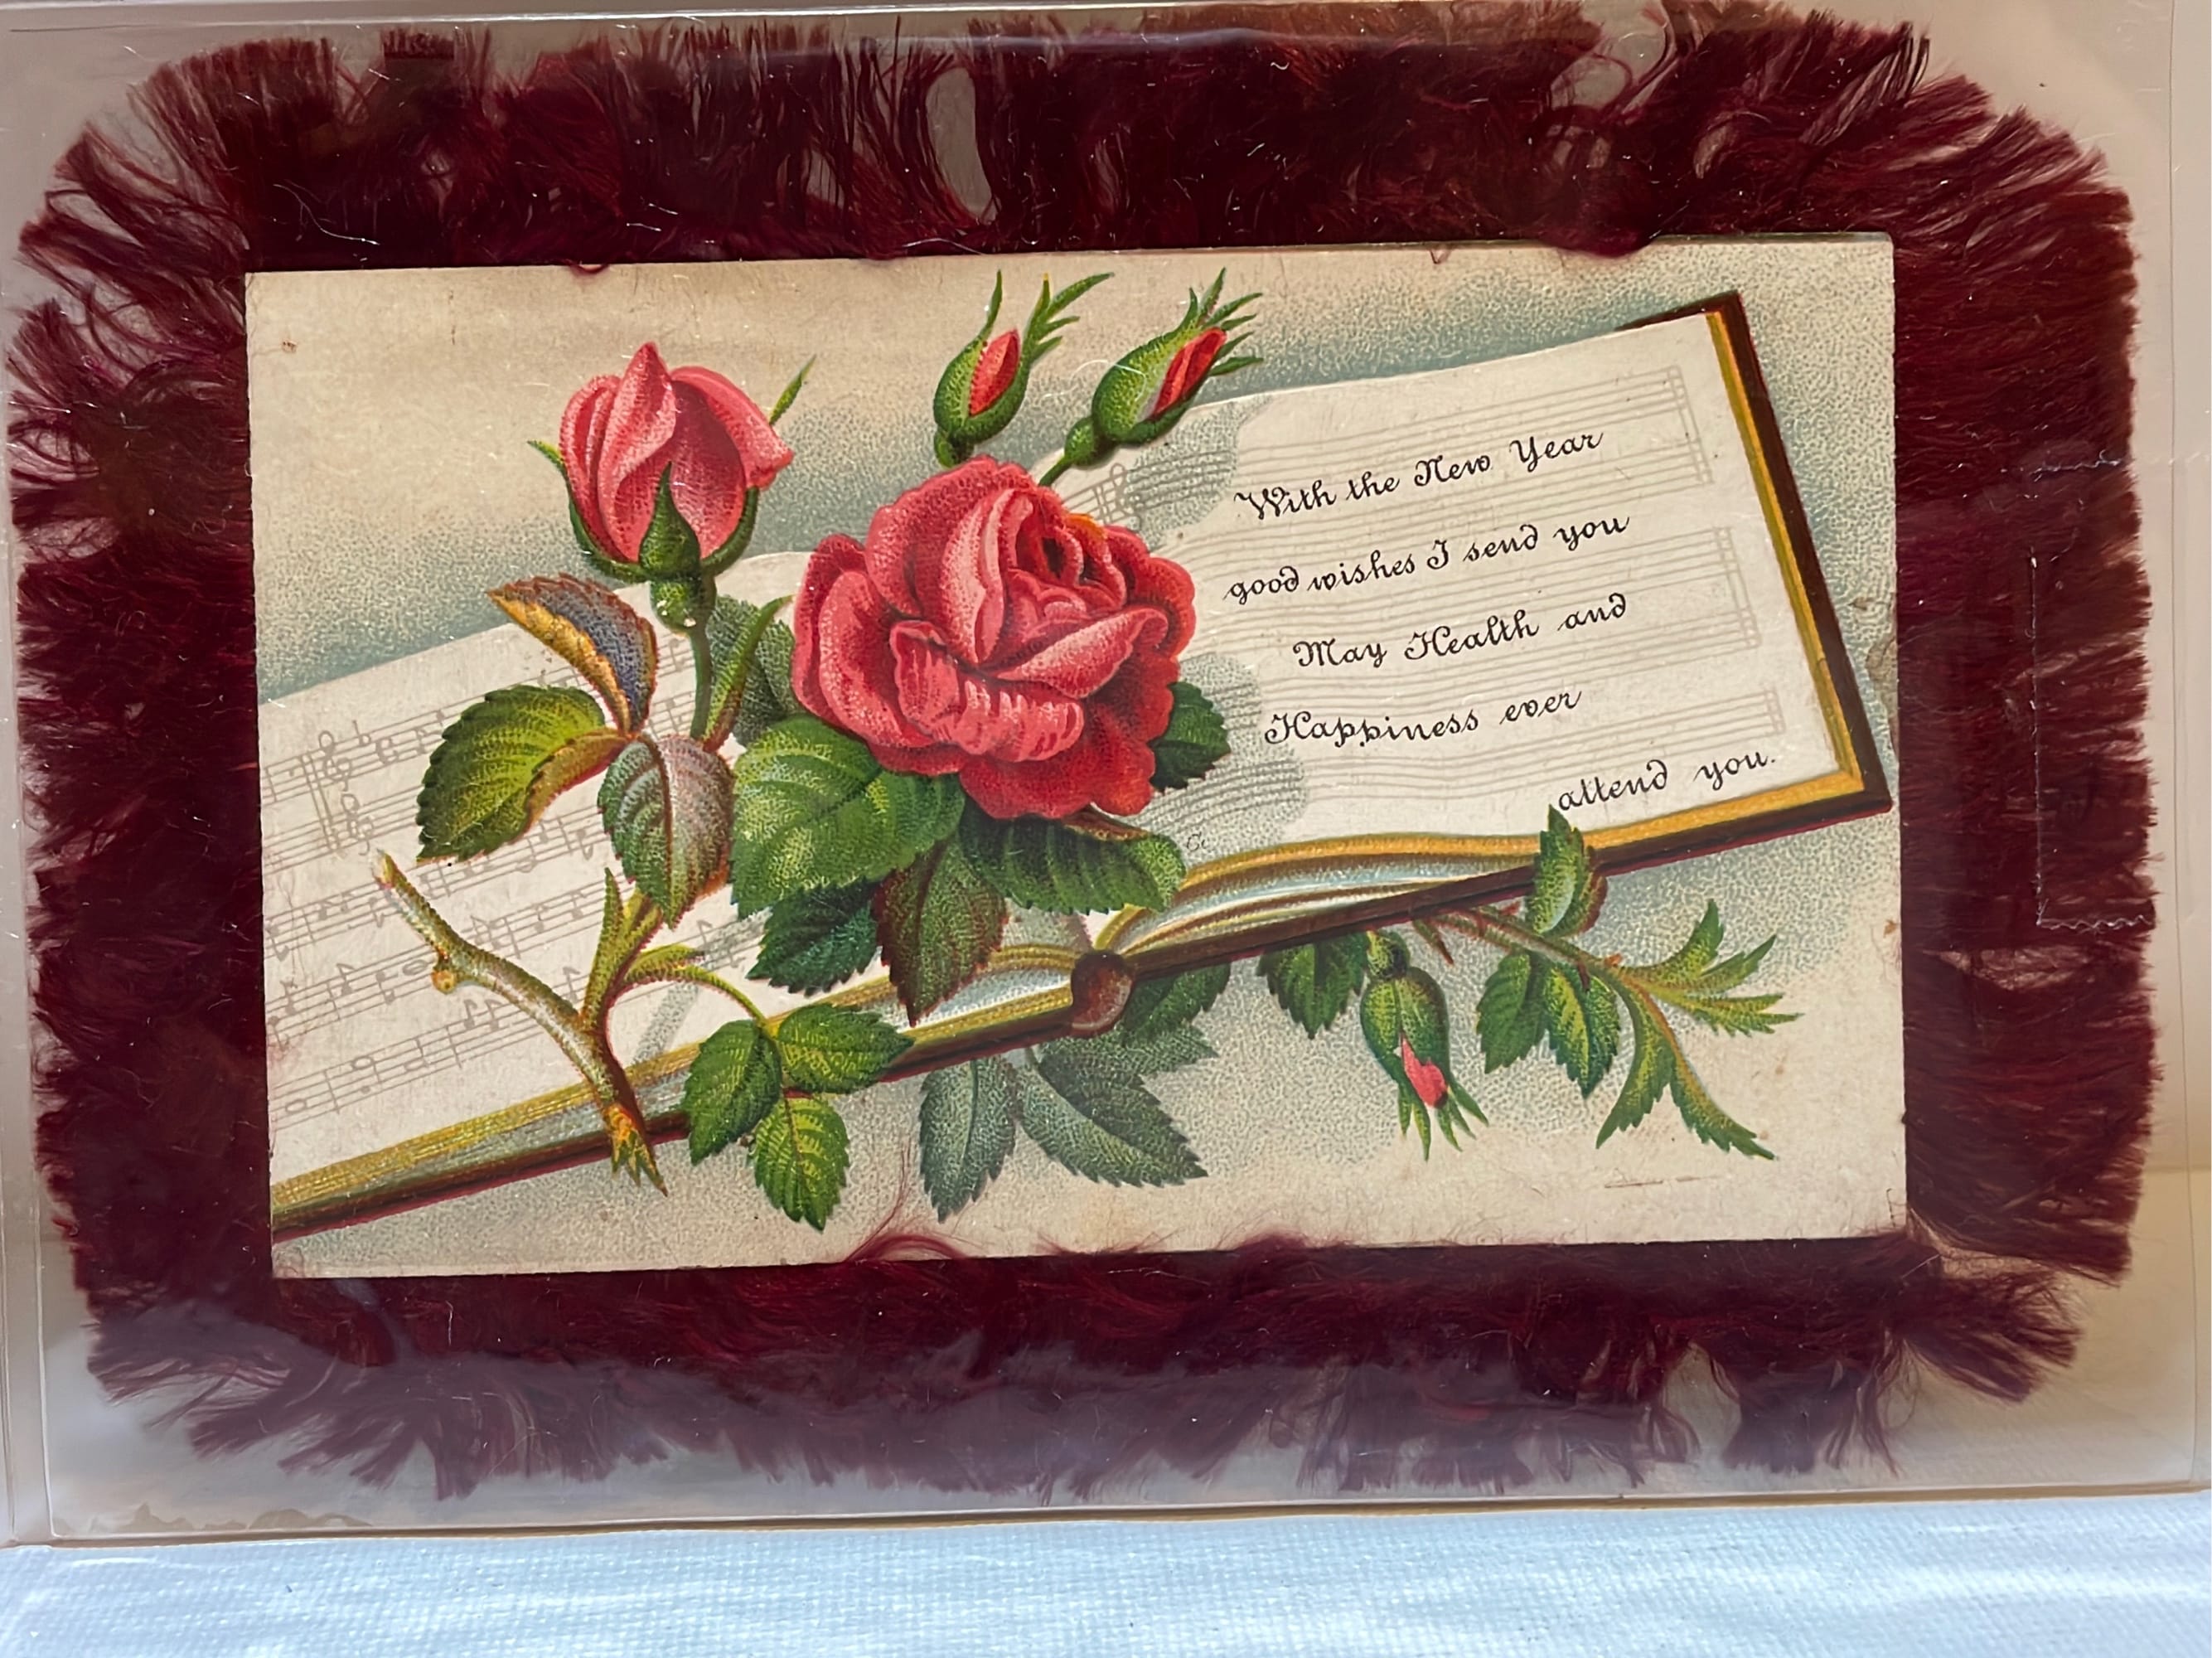 With the New Year
good wishes I send you
May Health and
Happiness ever
attend you.